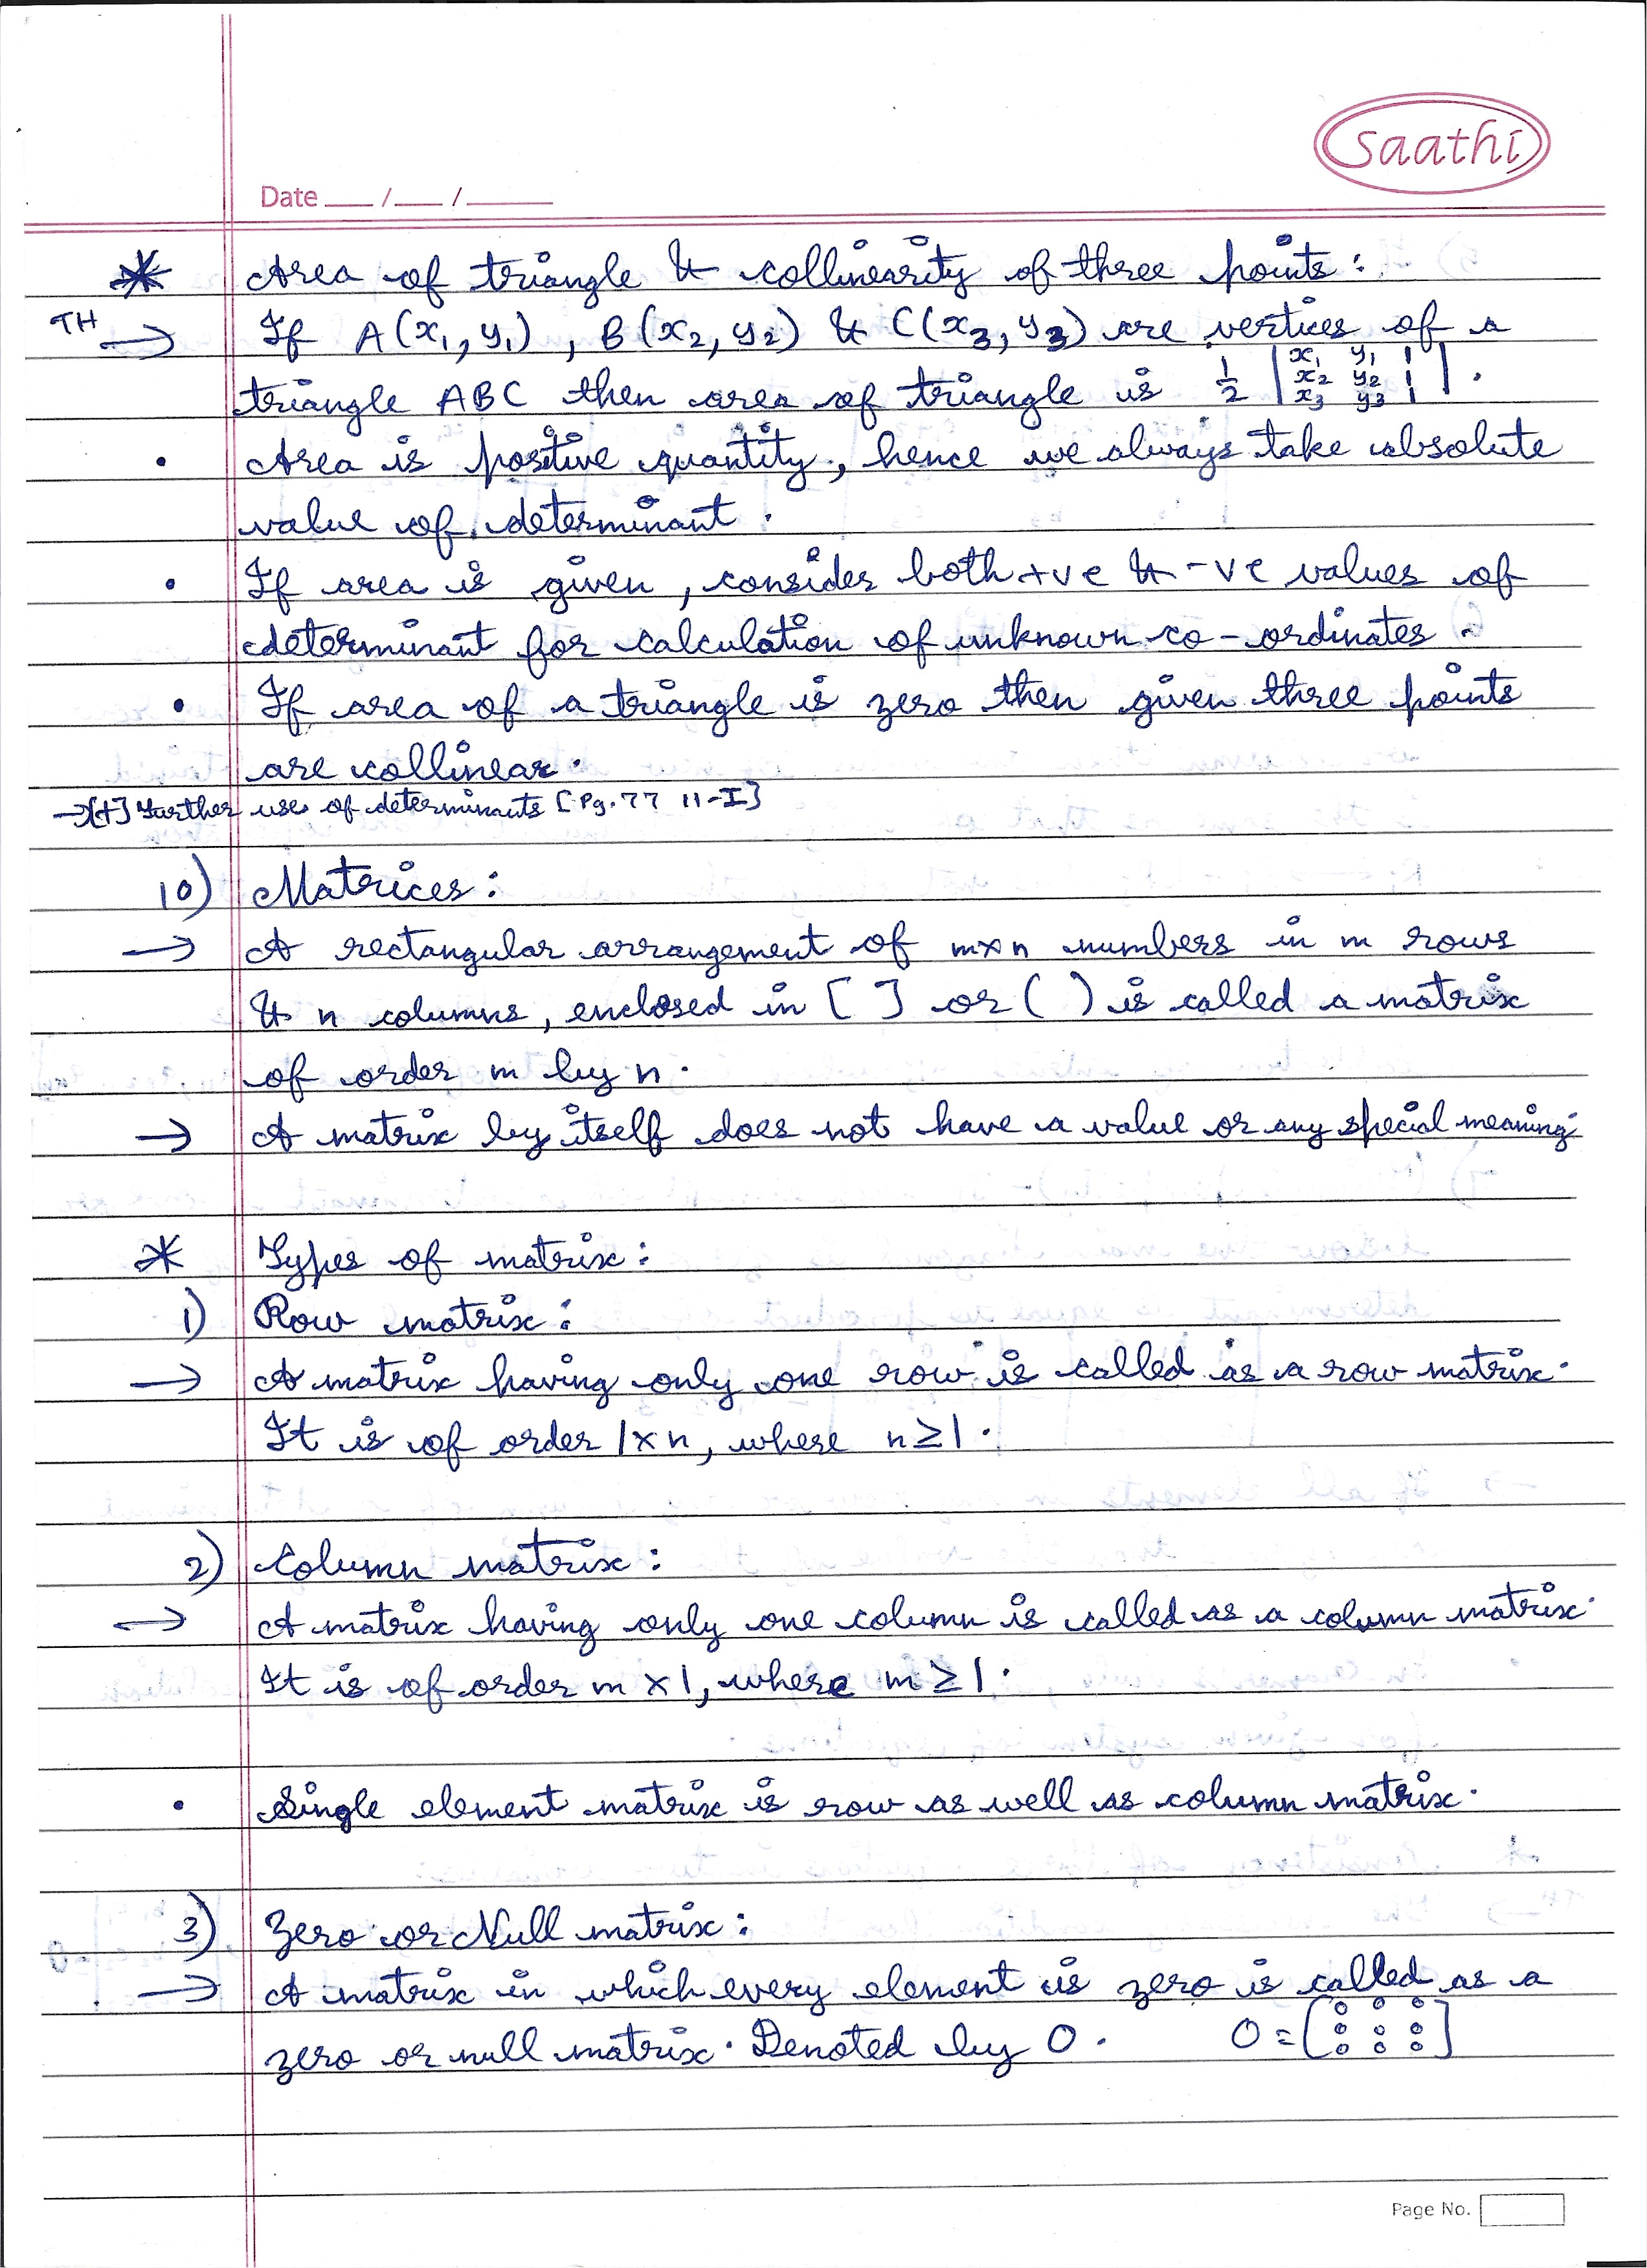 Saathi
Date ___ / ___ / ______
* Area of triangle & collinearity of three points :
TH → If A(x₁, y₁) , B(x₂, y₂) & C(x₃, y₃) are vertices of a
triangle ABC then area of triangle is 1/2 | x₁ y₁ 1 ; x₂ y₂ 1 ; x₃ y₃ 1 | .
• Area is positive quantity, hence we always take absolute
value of determinant .
• If area is given , consider both +ve & -ve values of
determinant for calculation of unknown co-ordinates .
• If area of a triangle is zero then given three points
are collinear .
→ [+] Further use of determinants [ Pg. 77 11-I ]
10) Matrices :
→ A rectangular arrangement of m×n numbers in m rows
& n columns, enclosed in [ ] or ( ) is called a matrix
of order m by n .
→ A matrix by itself does not have a value or any special meaning .
* Types of matrix :
1) Row matrix :
→ A matrix having only one row is called as a row matrix .
It is of order 1×n, where n ≥ 1 .
2) Column matrix :
→ A matrix having only one column is called as a column matrix .
It is of order m × 1, where m ≥ 1 .
• Single element matrix is row as well as column matrix .
3) Zero or Null matrix :
→ A matrix in which every element is zero is called as a
zero or null matrix . Denoted by O . O = [ 0 0 0 ; 0 0 0 ; 0 0 0 ]
Page No.